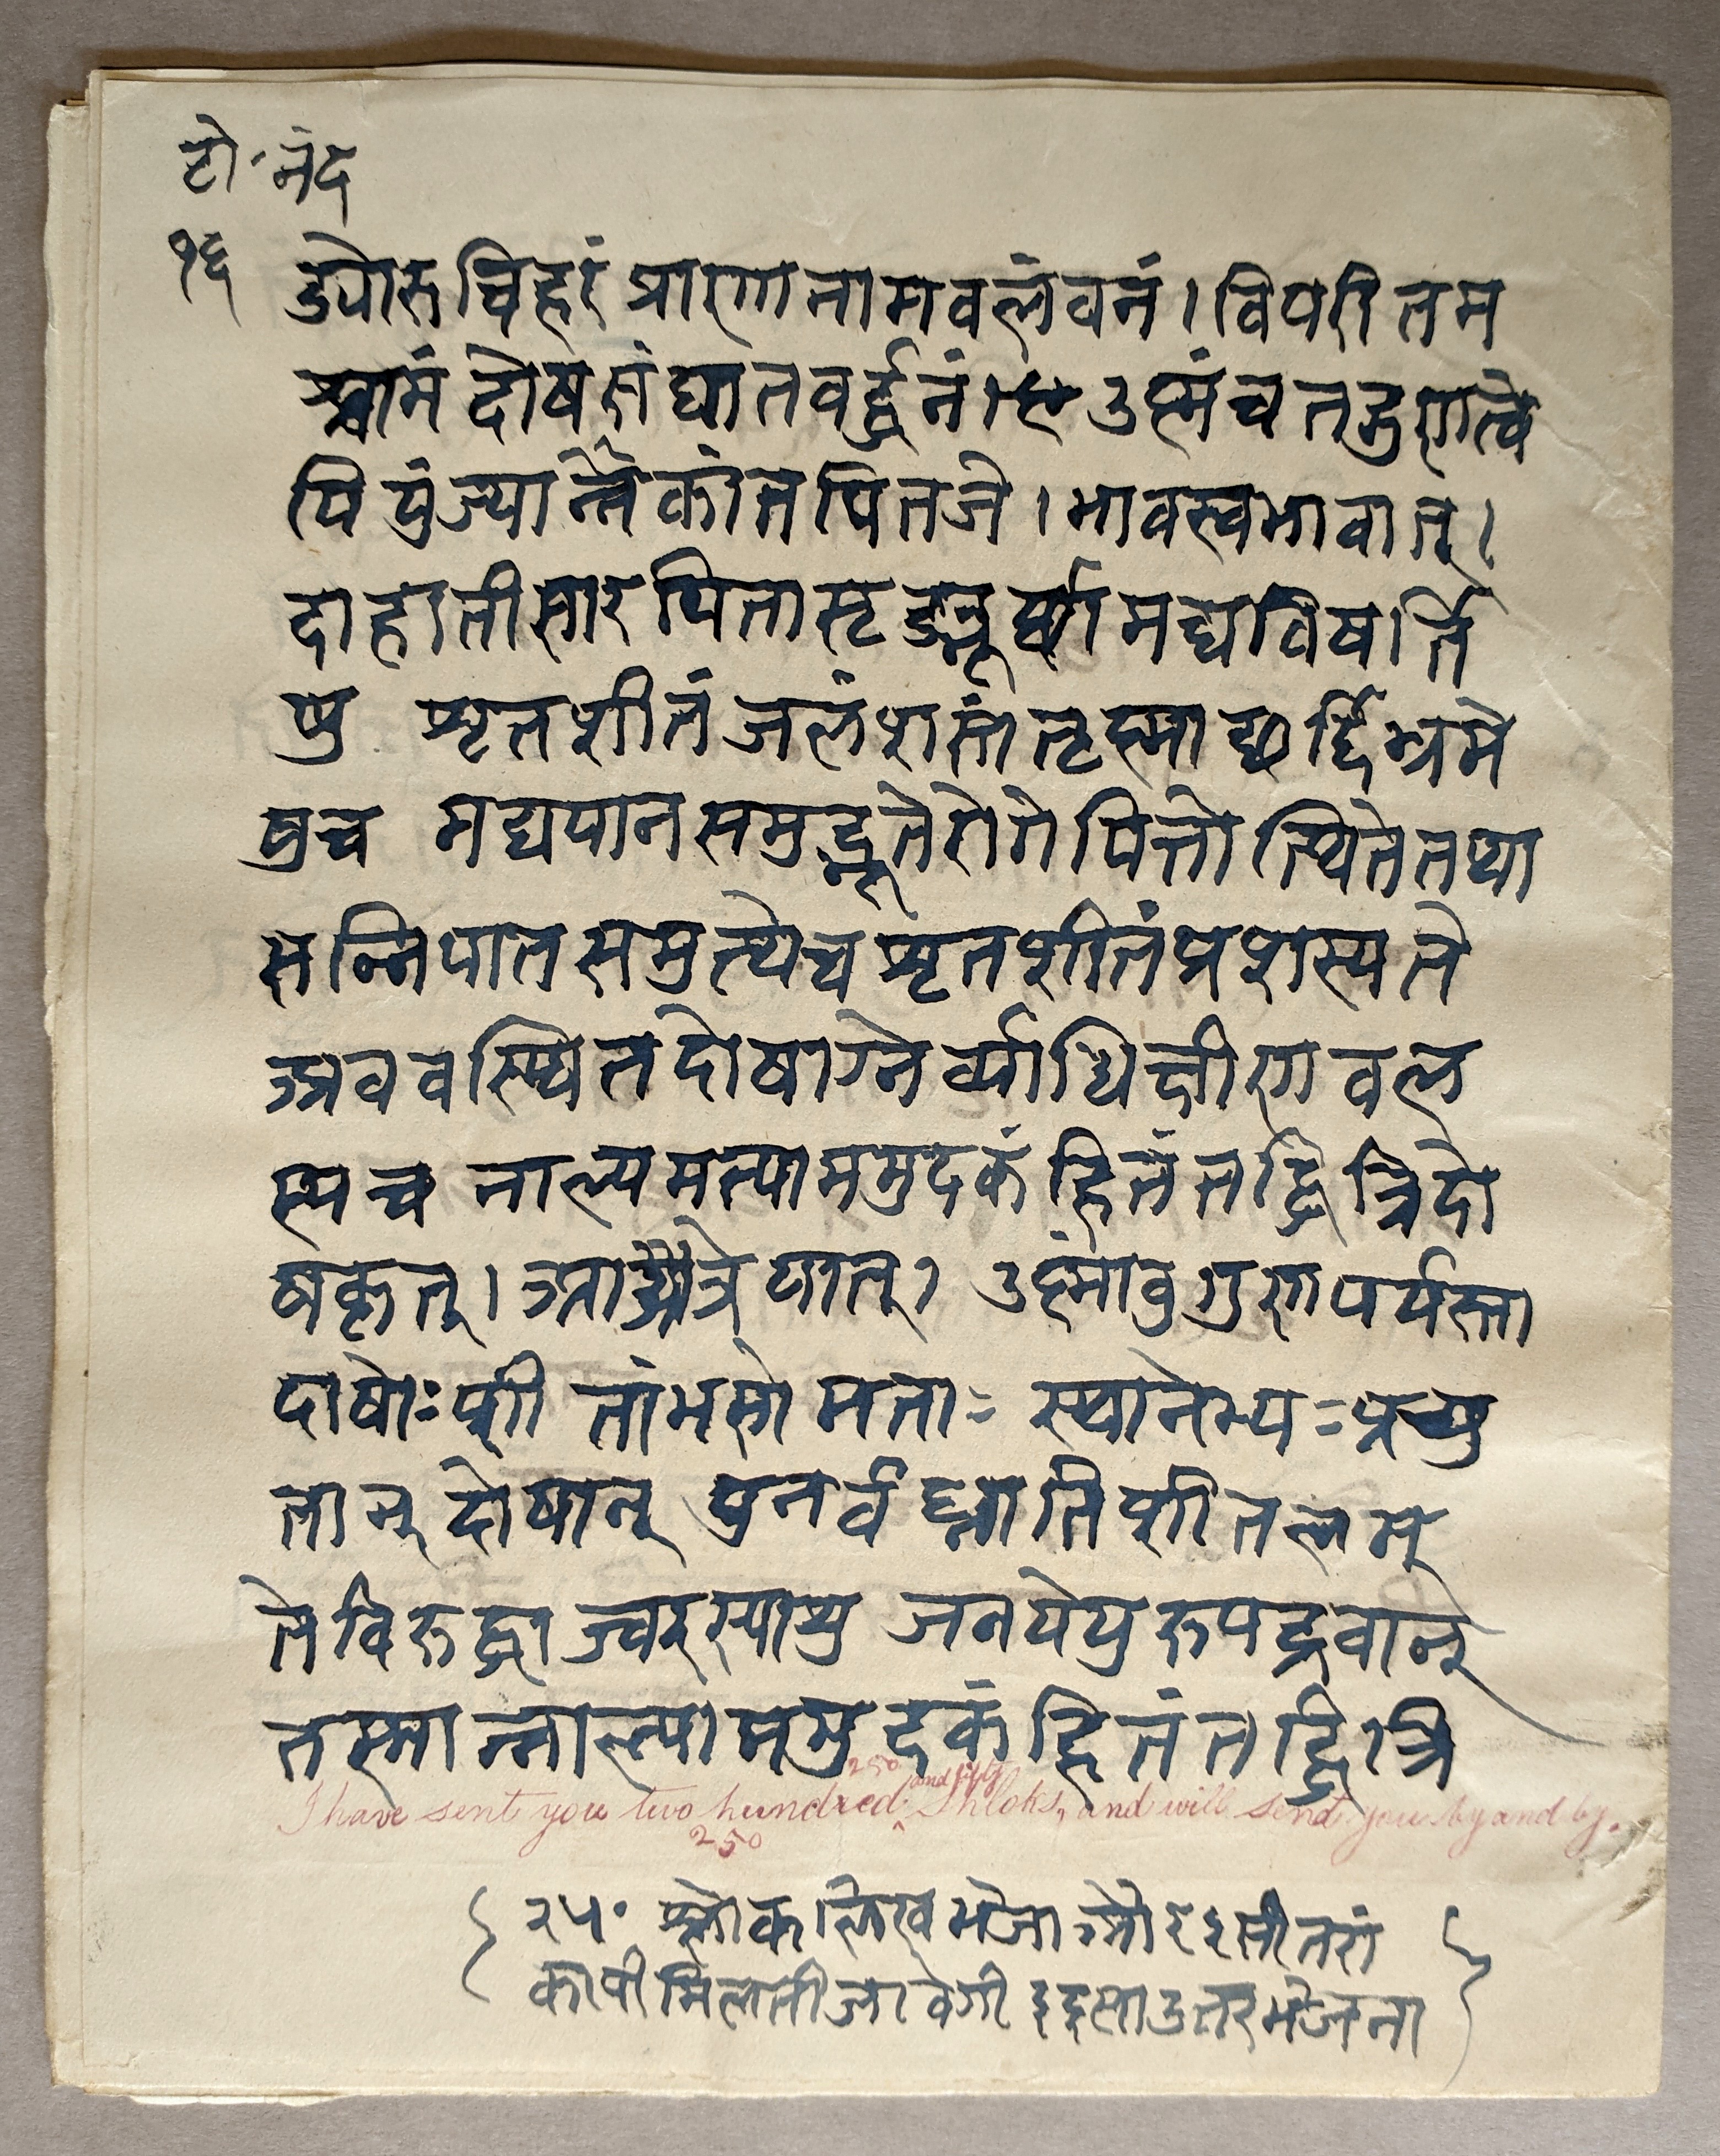 टो॰ नंद
१६
ड्योरुचिहरं प्राणानामवलंवनं। विपरीतम
श्वामं दोषसंघातवर्द्धनं। उह्मंच तद्गुणत्वे
पि युंज्यान्नैकांतपित्तजे। भावस्वभावात्।
दाहातीसारपित्तासृङ्मूर्छामद्यविषार्ति
षु शृतशीतं जलं शस्तं तृह्माछर्दिभ्रमे
षुच मद्यपानसमुद्भूतेरोगे पित्तोत्थितेतथा
सन्निपातसमुत्थेच शृतशीतंप्रशस्यते
अववस्थितदोषाग्नेर्व्याधिक्षीणवल
स्यच नाल्पमत्पाममुदकं हितं तद्धि त्रिदो
षकृत्। आत्रेयात्। उह्मांवुगुणपर्यस्ता
दोषाः शीतांभसो मताः स्थानेभ्यः प्रच्यु
तान् दोषान् पुनर्वघ्नाति शीतलम्
तेविरुद्धा ज्वरस्याशु जनयेयुरुपद्रवान्
तस्मान्नाल्पाममुदकं हितं तद्धि त्रि
I have sent you two hundred 250 and fifty Shloks, and will send you by and by.
250
२५० श्लोक लिख भेजा और इसीतरां
कापी मिलती जावेगी इस्का उत्तर भेजना